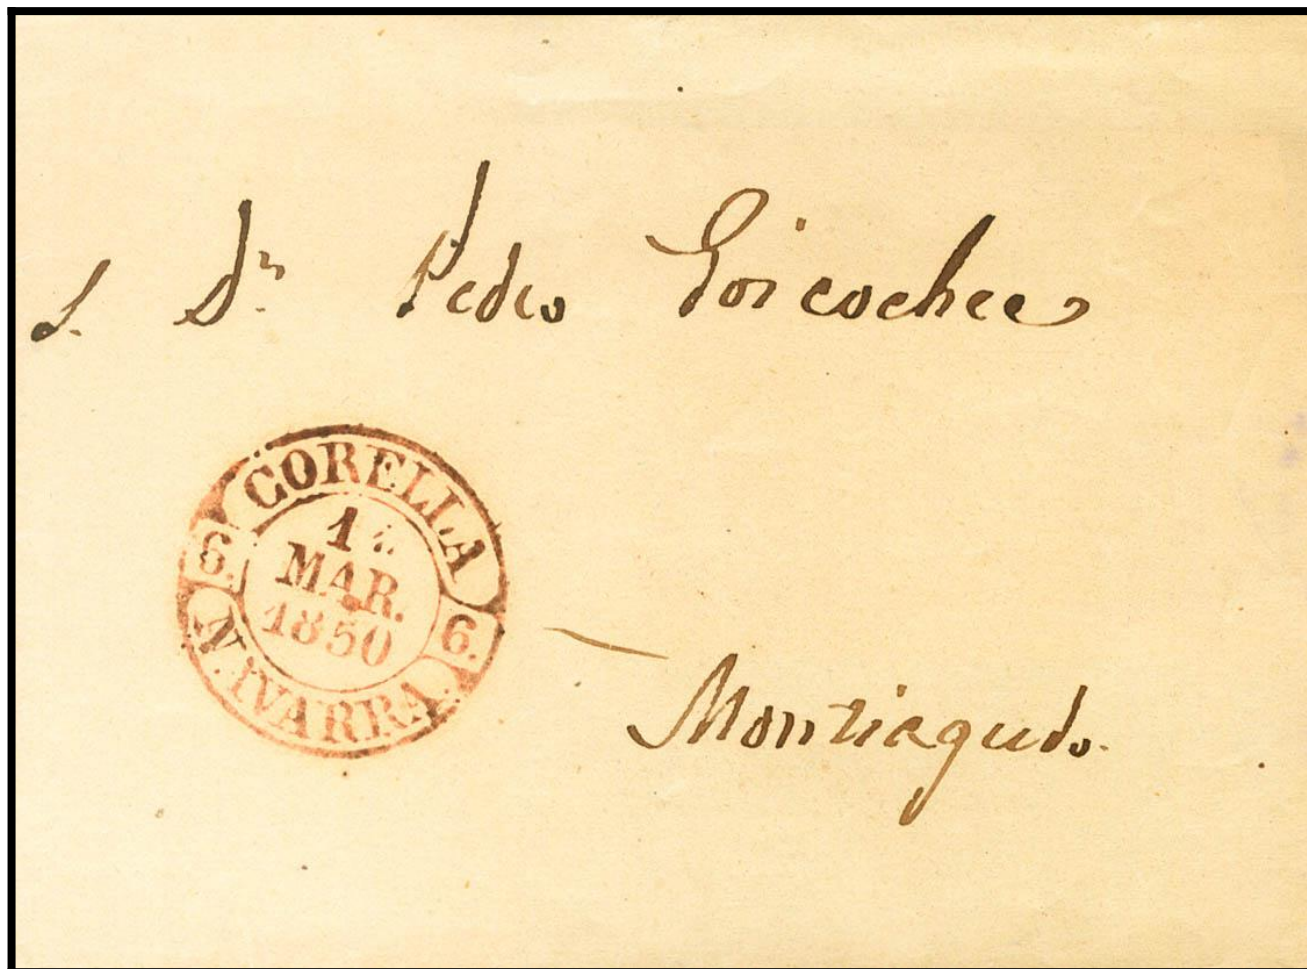 S. Dn. Pedro Goicochea
CORELLA
6.
MAR.
1850
6.
NAVARRA.
Monteagudo.